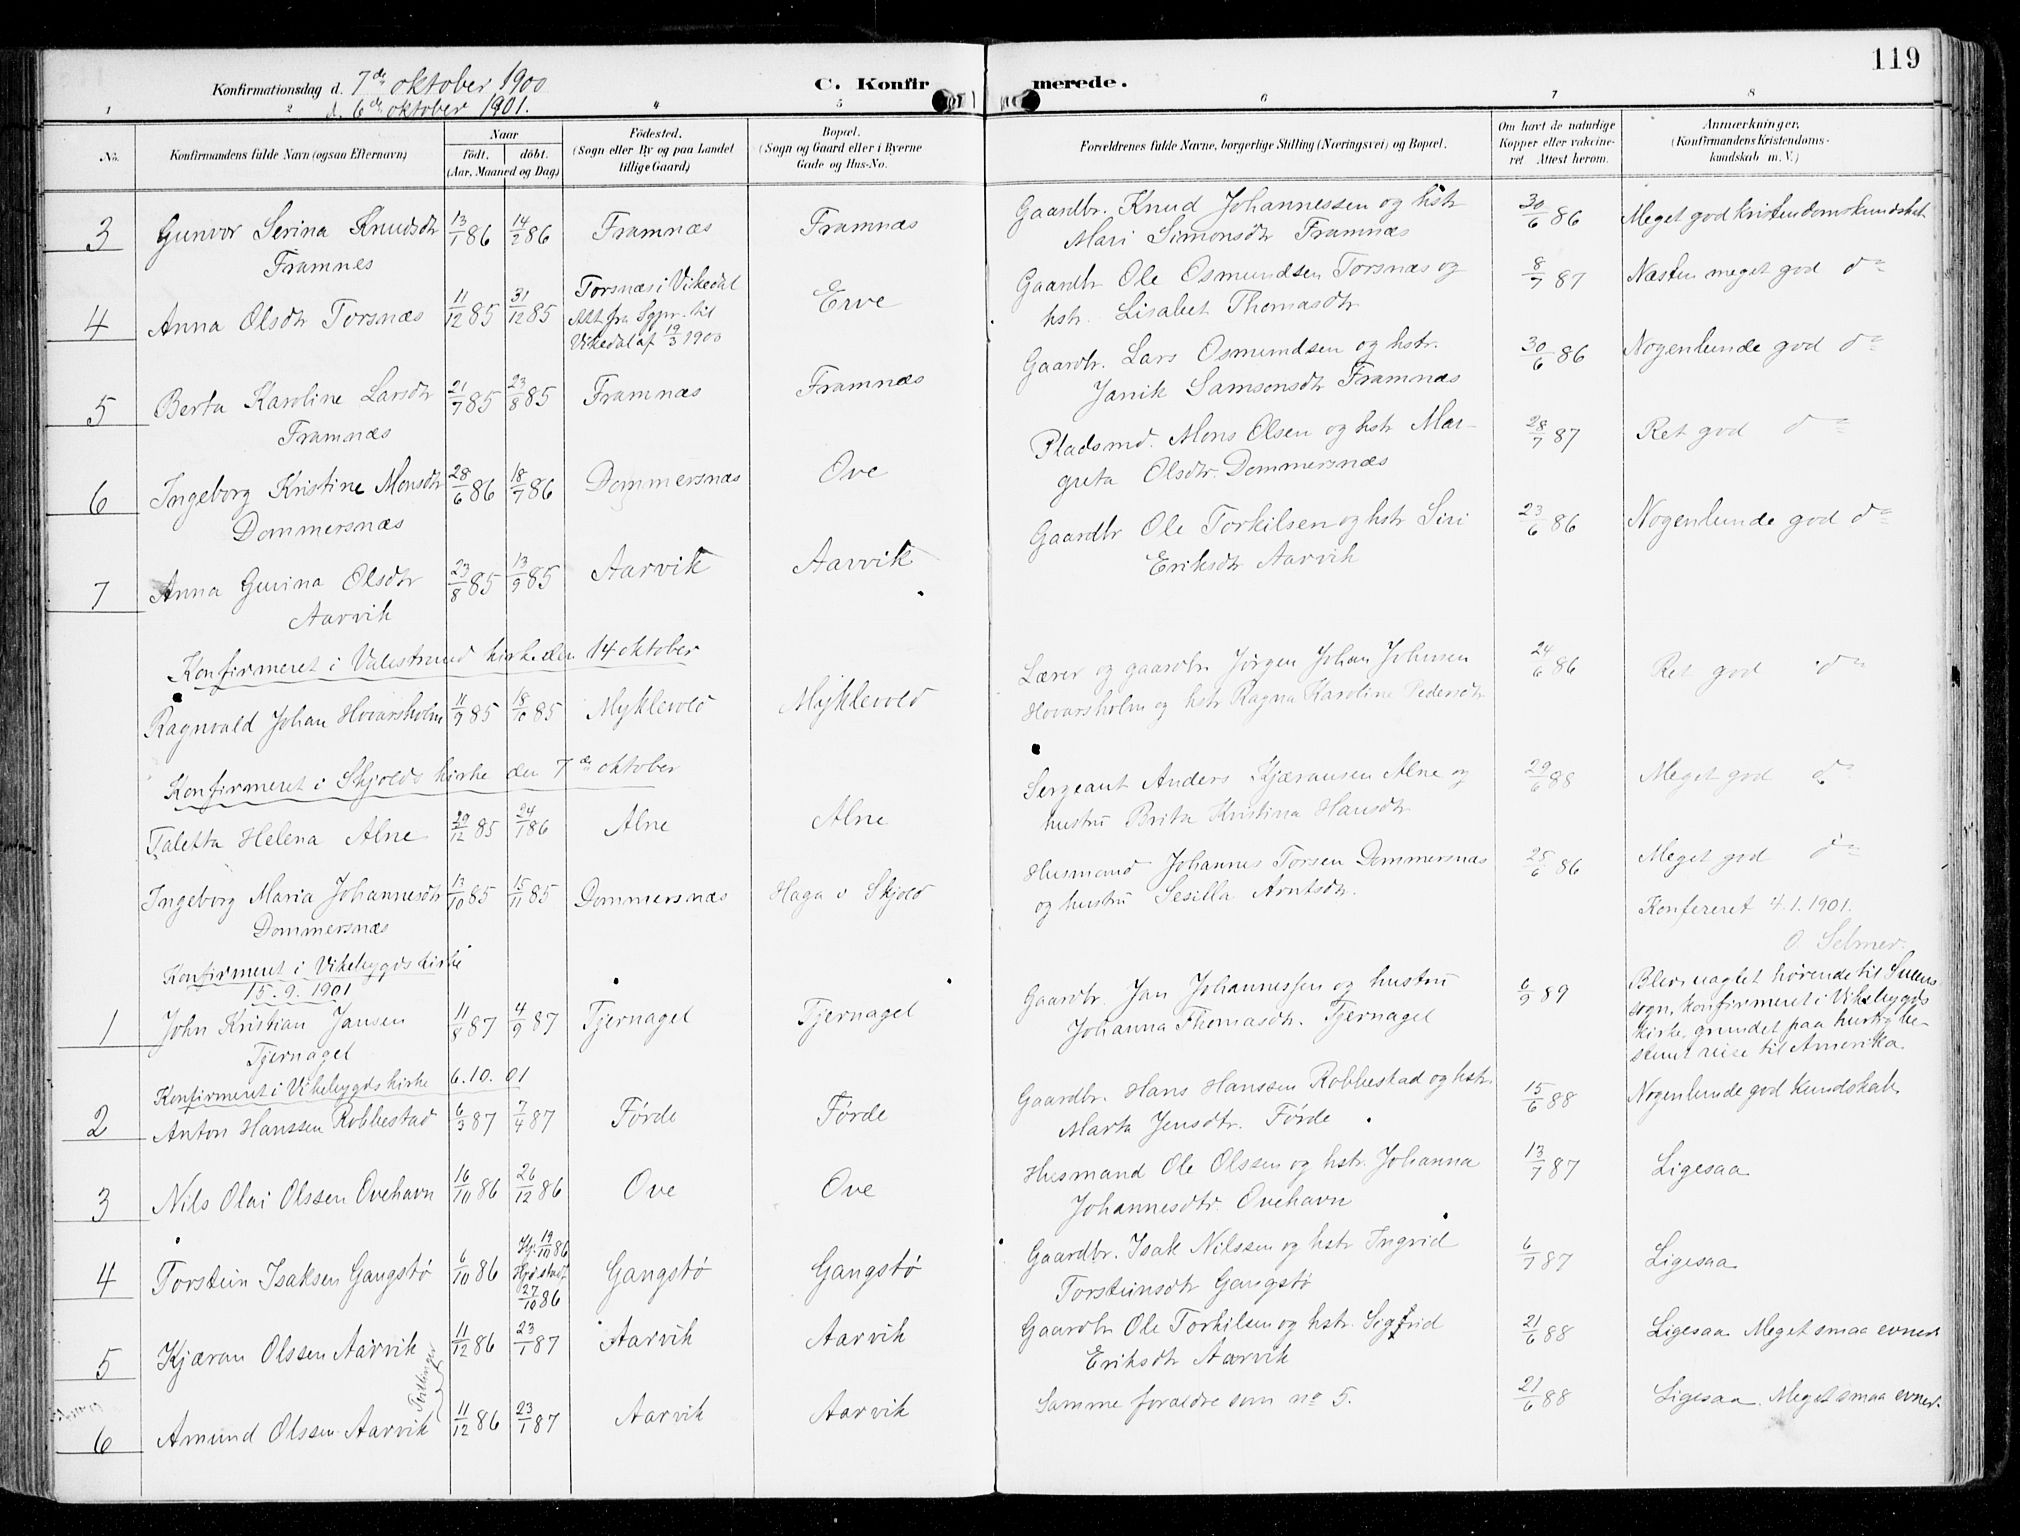 119
Konfirmationsdag d. 7de oktober 1900
d. 6te oktober 1901.
C. Konfirmerede.
1 2 4 5 6 7 8
No.
Konfirmandens fulde Navn (ogsaa Efternavn)
Naar
födt. döbt.
(Aar, Maaned og Dag)
Födested.
(Sogn eller By og paa Landet
tillige Gaard)
Bopæl.
(Sogn og Gaard eller i Byerne
Gade og Hus-No.
Forældrenes fulde Navne, borgerlige Stilling (Næringsvei) og Bopæl.
Om havt de naturlige
Kopper eller vakcine-
ret Attest herom.
Anmærkninger.
(Konfirmandens Kristendoms-
kundskab m. V.)
3 Gunvor Serina Knudsdtr 13/1 86 14/2 86 Framnæs Framnæs Gaardbr. Knud Johannessen og hstr 30/6 86 Meget god kristendomskundskab
Framnes Mari Simonsdtr Framnæs
4 Anna Olsdtr Torsnæs 11/12 85 31/12 85 Torsnæs i Vikedal Erve Gaardbr Ole Osmundsen Torsnæs og 8/7 87 Næsten meget god do
Att fra Sgpr. til hstr. Lisabet Thomasdtr
Vikedal af 19/3 1900
5 Berta Karoline Larsdtr 21/7 85 23/8 85 Framnæs Framnæs Gaardbr. Lars Osmundsen og hstr. 30/6 86 Nogenlunde god do
Framnæs Janik Samsonsdtr Framnæs
6 Ingeborg Kristine Monsdtr 28/6 86 18/7 86 Dommersnæs Ove Pladsmd. Mons Olsen og hstr Mar- 28/7 87 Ret god do
Dommersnæs greta Olsdtr. Dommersnæs
7 Anna Gurina Olsdtr 23/8 85 13/9 85 Aarvik Aarvik Gaardbr Ole Torkilsen og hstr Siri 23/6 86 Nogenlunde god do
Aarvik Eriksdtr Aarvik
Konfirmeret i Valestrand kirke den 14 oktober
Ragnvald Johan Hovarsholm 11/9 85 18/10 85 Myklevold Myklevold Lærer og gaardbr Jørgen Johan Johnsen 24/6 86 Ret god do
Hovarsholm og hstr Ragna Karoline Pedersdtr
Konfirmeret i Skjolds kirke den 7de oktober
Taletta Helena Alne 29/12 85 24/1 86 Alne Alne Sergeant Anders Kjæransen Alne og 29/6 88 Meget god do
hustru Brita Kristina Hansdtr
Ingeborg Maria Johannesdtr 13/10 85 15/11 85 Dommersnæs Haga i Skjold Husmand Johannes Torsen Dommersnæs 25/6 86 Meget god do
Dommersnæs og hustru Sesilla Arntsdtr.
Konfereret 4.1.1901.
O. Selmer
Konfirmeret i Vikebygds kirke
15.9.1901
1 John Kristian Jansen 11/8 87 4/9 87 Tjernagel Tjernagel Gaardbr. Jan Johannessen og hustru 6/9 89 Blev uagtet hørende til Sveens
Tjernagel Johanna Thomasdtr. Tjernagel sogn, konfirmeret i Vikebygds
kirke, grundet paa hurtig be-
stemt reise til Amerika.
Konfirmeret i Vikebygds kirke 6.10.01
2 Anton Hanssen Robbestad 6/3 87 7/4 87 Førde Førde Gaardbr. Hans Hanssen Robbestad og hstr. 15/6 88 Nogenlunde god kundskab
Marta Jensdtr. Førde
3 Nils Olai Olssen Ovehavn 16/10 86 26/12 86 Ove Ove Husmand Ole Olssen og hstr. Johanna 13/7 87 Ligesaa
Johannesdtr. Ovehavn
4 Torstein Isaksen Gangstø 6/10 86 Hj. 19/10 86 Gangstø Gangstø Gaardbr. Isak Nilssen og hstr Ingrid 6/7 87 Ligesaa
27/10 86 Torsteinsdtr Gangstø
5 Kjæran Olssen Aarvik 11/12 86 23/1 87 Aarvik Aarvik Gaardbr Ole Torkilsen og hstr. Sigfrid 21/6 88 Ligesaa Meget smaa evner
Eriksdtr Aarvik
Tvillinger
6 Amund Olssen Aarvik 11/12 86 23/1 87 Aarvik Aarvik Samme forældre som no 5. 21/6 88 Ligesaa. Meget smaa evner.